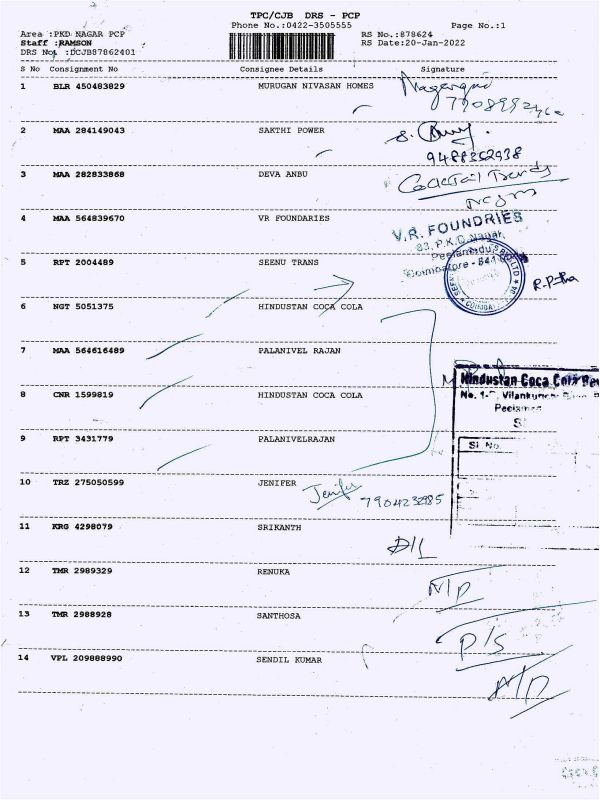 TPC/CJB DRS - PCP
Phone No.:0422-3505555 Page No.:1
Area :PKD NAGAR PCP RS No.:878624
Staff :RAMSON RS Date:20-Jan-2022
DRS No :DCJB87862401
S No Consignment No Consignee Details Signature
1 BLR 450483829 MURUGAN NIVASAN HOMES
2 MAA 284149043 SAKTHI POWER
9488352938
3 MAA 282833868 DEVA ANBU Cocktail Trends
4 MAA 564839670 VR FOUNDARIES
V.R. FOUNDRIES
83, P.K.D. Nagar,
Peelamedu
Coimbatore - 641
5 RPT 2004489 SEENU TRANS
6 NGT 5051375 HINDUSTAN COCA COLA
7 MAA 564616489 PALANIVEL RAJAN
Hindustan Coca Cola Bev
8 CNR 1599819 HINDUSTAN COCA COLA
No. 1- Vilankur
9 RPT 3431779 PALANIVELRAJAN
Sl No.
10 TRZ 275050599 JENIFER Jenifer
7904232985
11 KRG 4298079 SRIKANTH
D/L
12 TMR 2989329 RENUKA
N/D
13 TMR 2988928 SANTHOSA
P/S
14 VPL 209888990 SENDIL KUMAR